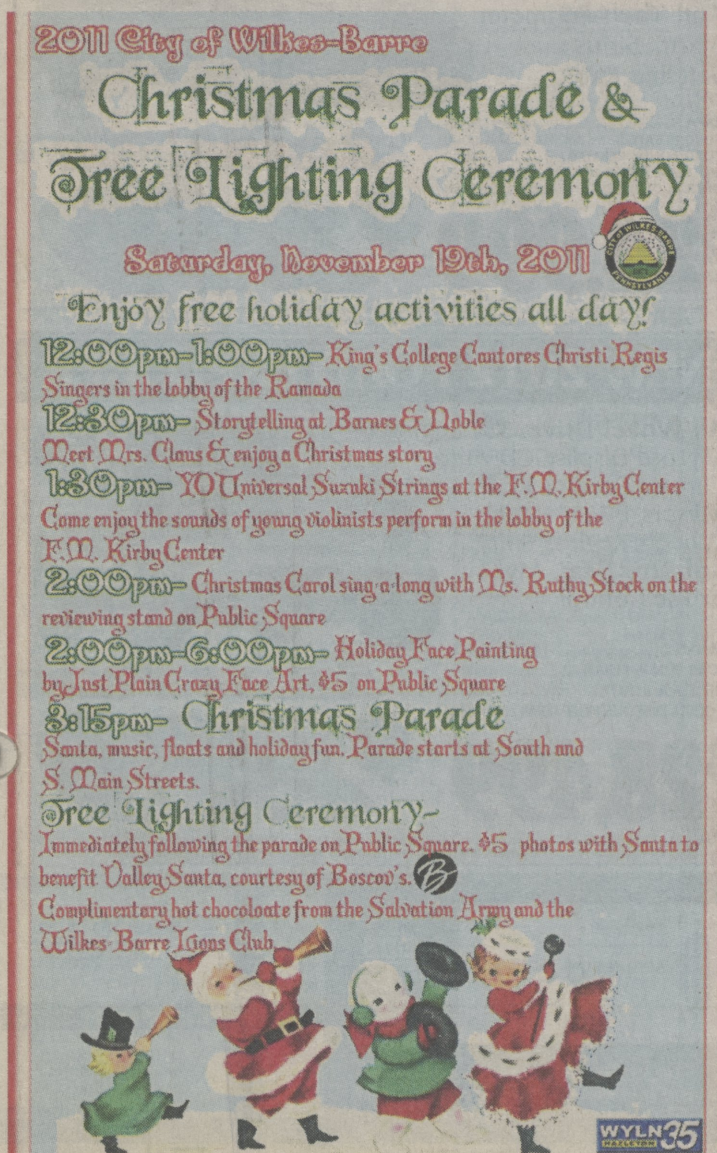 2011 City of Wilkes-Barre
Christmas Parade &
Tree Lighting Ceremony
Saturday, November 19th, 2011
CITY of WILKES-BARRE
PENNSYLVANIA
Enjoy free holiday activities all day!
12:00pm-1:00pm- King's College Cantores Christi Regis
Singers in the lobby of the Ramada
12:30pm- Storytelling at Barnes & Noble
Meet Mrs. Claus & enjoy a Christmas story
1:30pm- YOUniversal Suzuki Strings at the F.M. Kirby Center
Come enjoy the sounds of young violinists perform in the lobby of the
F.M. Kirby Center
2:00pm- Christmas Carol sing-a-long with Ms. Ruthy Stock on the
reviewing stand on Public Square
2:00pm-6:00pm- Holiday Face Painting
by Just Plain Crazy Face Art, $5 on Public Square
3:15pm- Christmas Parade
Santa, music, floats and holiday fun. Parade starts at South and
S. Main Streets.
Tree Lighting Ceremony-
Immediately following the parade on Public Square. $5 photos with Santa to
benefit Valley Santa, courtesy of Boscov's. B
Complimentary hot chocoloate from the Salvation Army and the
Wilkes-Barre Lions Club
WYLN 35
HAZLETON